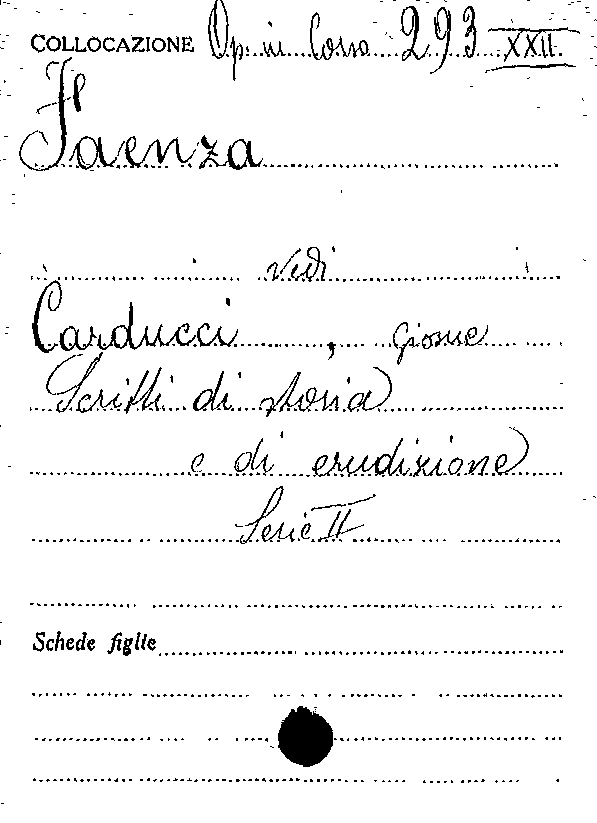 COLLOCAZIONE Op. in Corso 293 XXII
Faenza
vedi
Carducci, Giosue
Scritti di storia
e di erudizione
Serie II
Schede figlie